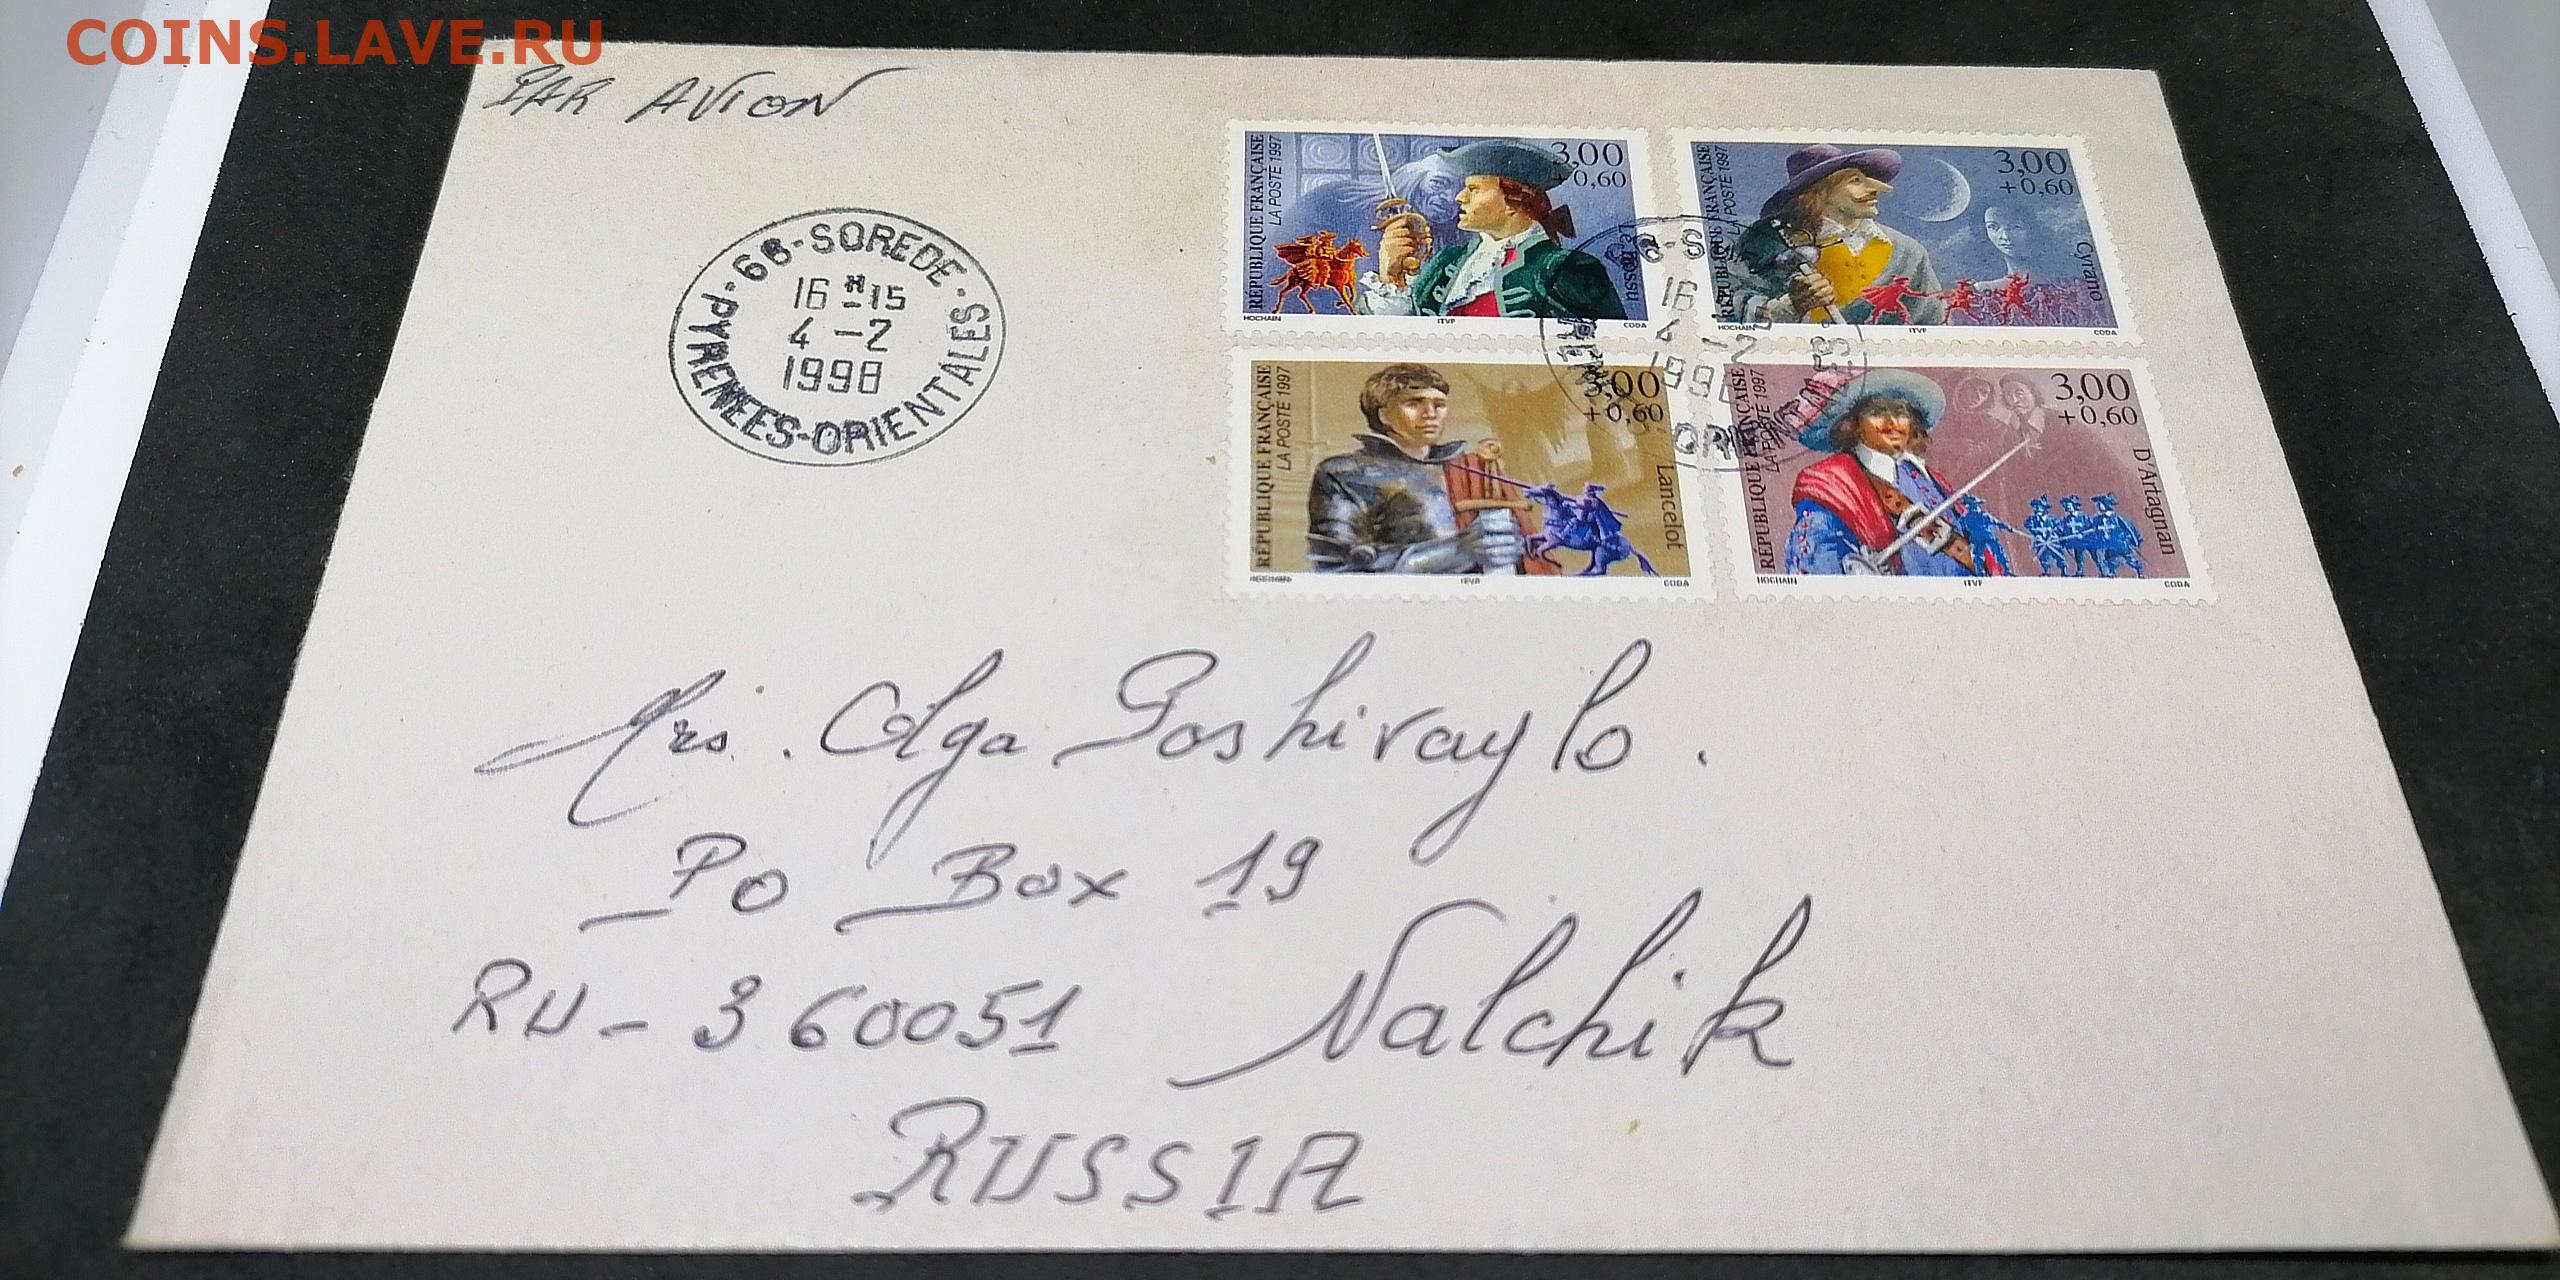 COINS.LAVE.RU
PAR AVION
66-SOREDE
16H-15
4-2
1998
PYRENEES-ORIENTALES
RÉPUBLIQUE FRANÇAISE
LA POSTE 1997
3,00
+0,60
Le Bossu
HOCHAIN ITVF CODA
RÉPUBLIQUE FRANÇAISE
LA POSTE 1997
3,00
+0,60
Cyrano
HOCHAIN ITVF CODA
RÉPUBLIQUE FRANÇAISE
LA POSTE 1997
3,00
+0,60
Lancelot
HOCHAIN ITVF CODA
RÉPUBLIQUE FRANÇAISE
LA POSTE 1997
3,00
+0,60
D'Artagnan
HOCHAIN ITVF CODA
Mrs. Olga Poshivaylo.
PO Box 19
RU-360051 Nalchik
RUSSIA